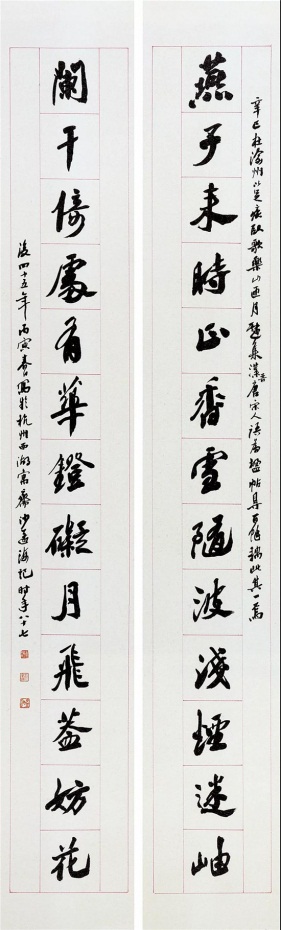 辛巳在渝州以足疾臥歌樂山匝月集漢晉唐宋人語為楹帖百餘聯此其一焉
燕子来時正香雪隨波淺煙迷岫
闌干倚處有華鐙礙月飛蓋妨花
後四十五年丙寅春日寫於杭州西湖寓齋沙孟海記時年八十七